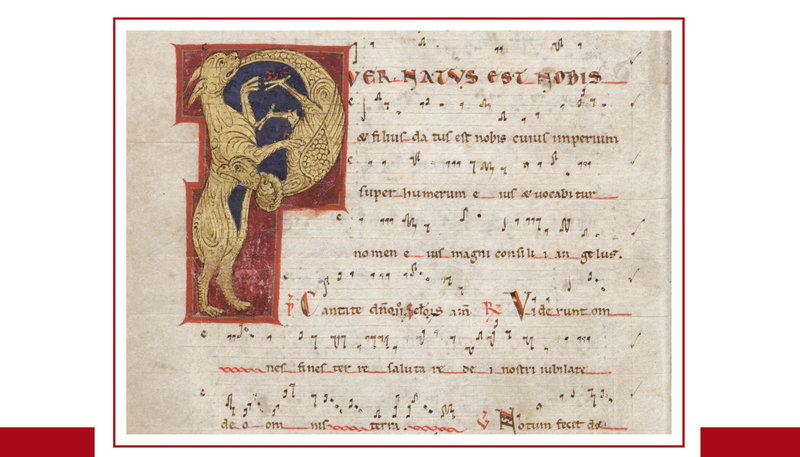 PVER NATVS EST NOBIS
& filius da tus est nobis cuius imperium
super humerum e ius & vocabitur
nomen e ius magni consili i an gelus.
Cantate Vide runt om
nes fines ter re saluta re de i nostri iubilate
de o om nis terra. Notum fecit